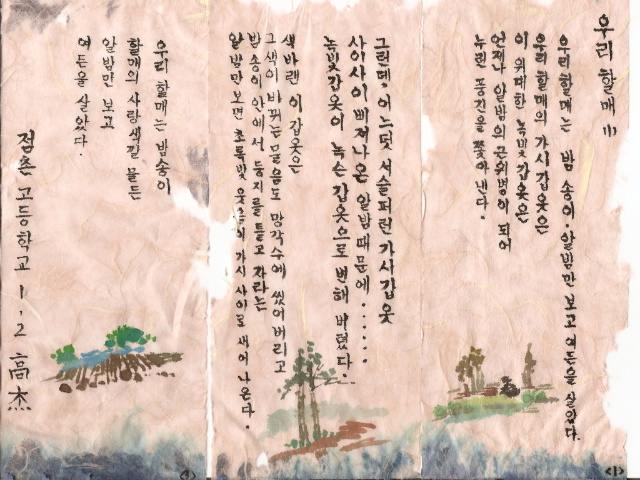 우리 할매 Ⅲ
우리 할매는 밤 송이. 알밤만 보고 여든을 살았다.
우리 할매의 가시갑옷은
이 위대한 녹빛갑옷은
언제나 알밤의 근위병이 되어
누런 풍진을 쫓아낸다.
<1>
그런데, 어느덧 서슬퍼런 가시갑옷
사이사이 삐져나온 알밤때문에......
녹빛갑옷이 녹슨 갑옷으로 변해 버렸다.
색바랜 이 갑옷은
그 색이 바뀌는 물음도 망각수에 씻어버리고
밤송이 안에서 둥지를 틀고 자라는
알밤만 보면 초록빛 가시 사이로 새어 나온다.
우리 할매는 밤송이
할매의 사랑색깔 물든
알밤만 보고
여든을 살았다.
점촌고등학교 1,2 高杰